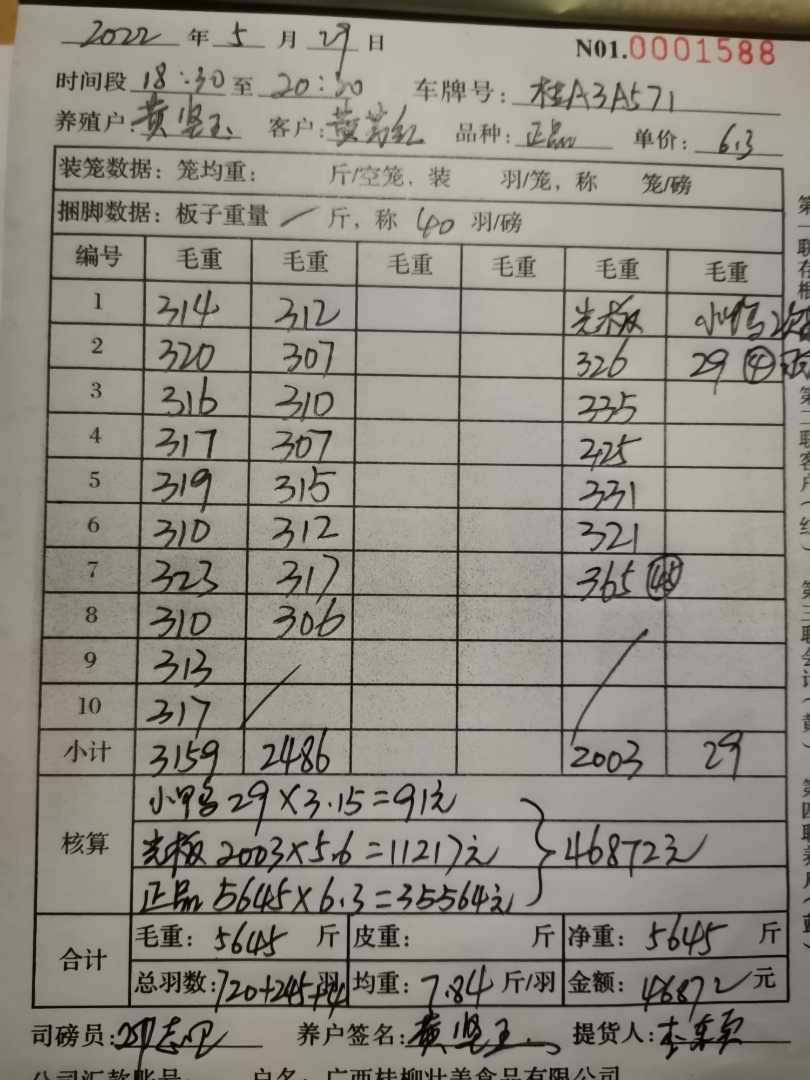 2022 年 5 月 29 日 N01.0001588
时间段 18:30 至 20:30 车牌号: 桂A3A571
养殖户: 黄坚玉 客户: 品种: 正品 单价: 6.3
装笼数据: 笼均重: 斤/空笼, 装 羽/笼, 称 笼/磅
捆脚数据: 板子重量 / 斤, 称 40 羽/磅
编号 毛重 毛重 毛重 毛重 毛重 毛重
1 314 312 光板 小鸭
2 320 307 326 29 ④
3 316 310 335
4 317 307 325
5 319 315 331
6 310 312 321
7 323 317 365 ㊺
8 310 306
9 313 /
10 317
小计 3159 2486 2003 29
核算
小鸭 29×3.15=91元
光板 2003×5.6=11217元 } 46872元
正品 5645×6.3=35564元
合计
毛重: 5645 斤 皮重: 斤 净重: 5645 斤
总羽数: 720+245+4 羽 均重: 7.84 斤/羽 金额: 46872 元
司磅员: 养户签名: 黄坚玉 提货人:
公司汇款账号 户名: 广西桂柳壮美食品有限公司
第一联存根
第二联客户(红)
第三联会计(黄)
第四联养户(蓝)